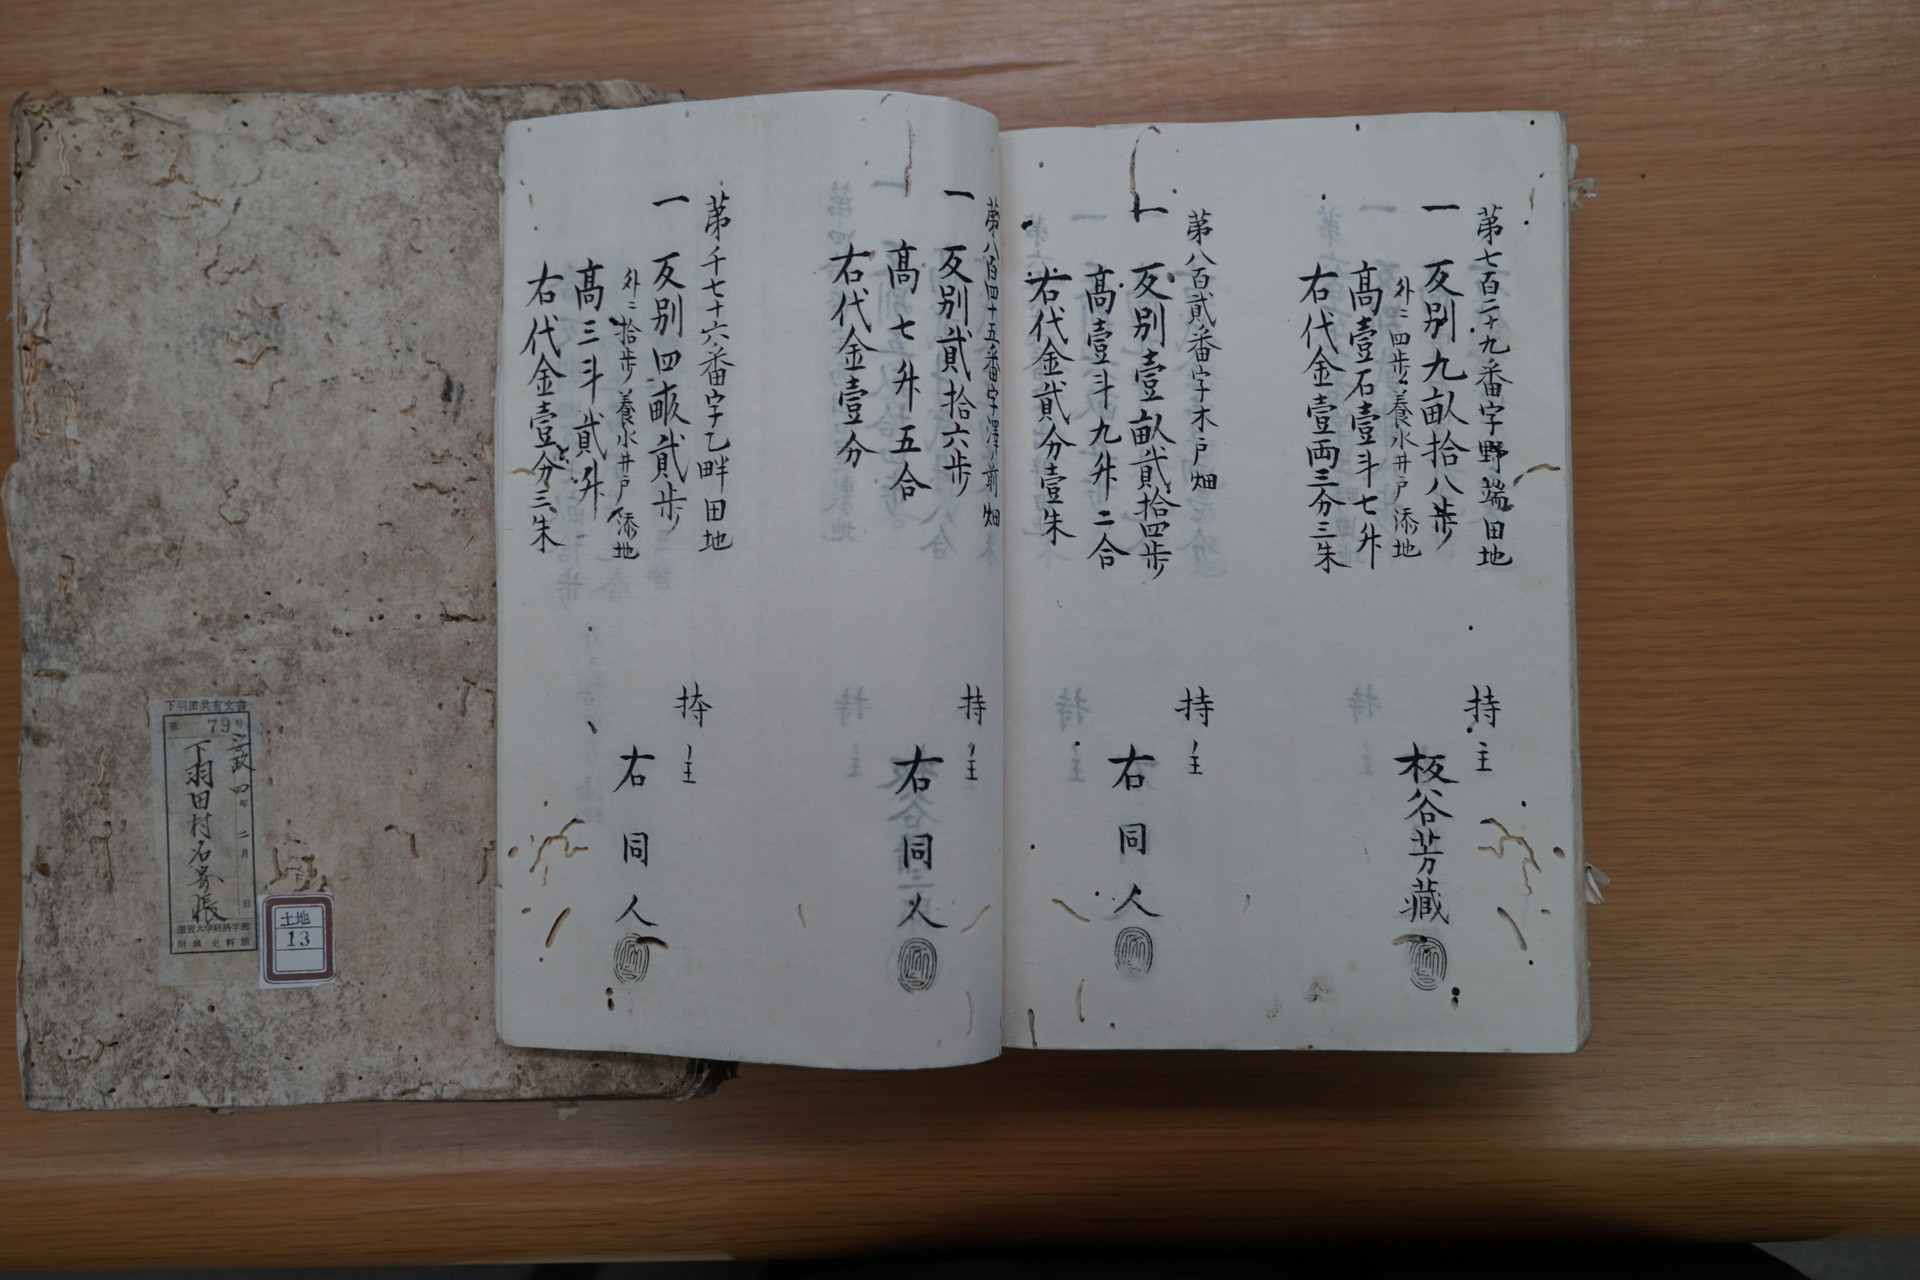 第七百二十九番字野端田地
一 反別九畝拾八歩
外ニ四歩養水井戸添地
高壹石壹斗七升
右代金壹両三分三朱
持主
板谷芳蔵
第八百貳番字木戸畑
一 反別壹畝貳拾四歩
高壹斗九升二合
右代金貳分壹朱
持主
右同人
第八百四十五番字澤ノ前畑
一 反別貳拾六歩
高七升五合
右代金壹分
持主
右同人
第千七十六番字乙畔田地
一 反別四畝貳歩
外ニ拾歩養水井戸添地
高三斗貳升
右代金壹分三朱
持主
右同人
下羽田共有文書
第79号
政四年二月日
下羽田村名寄帳
滋賀大学経済学部
附属史料館
土地
13